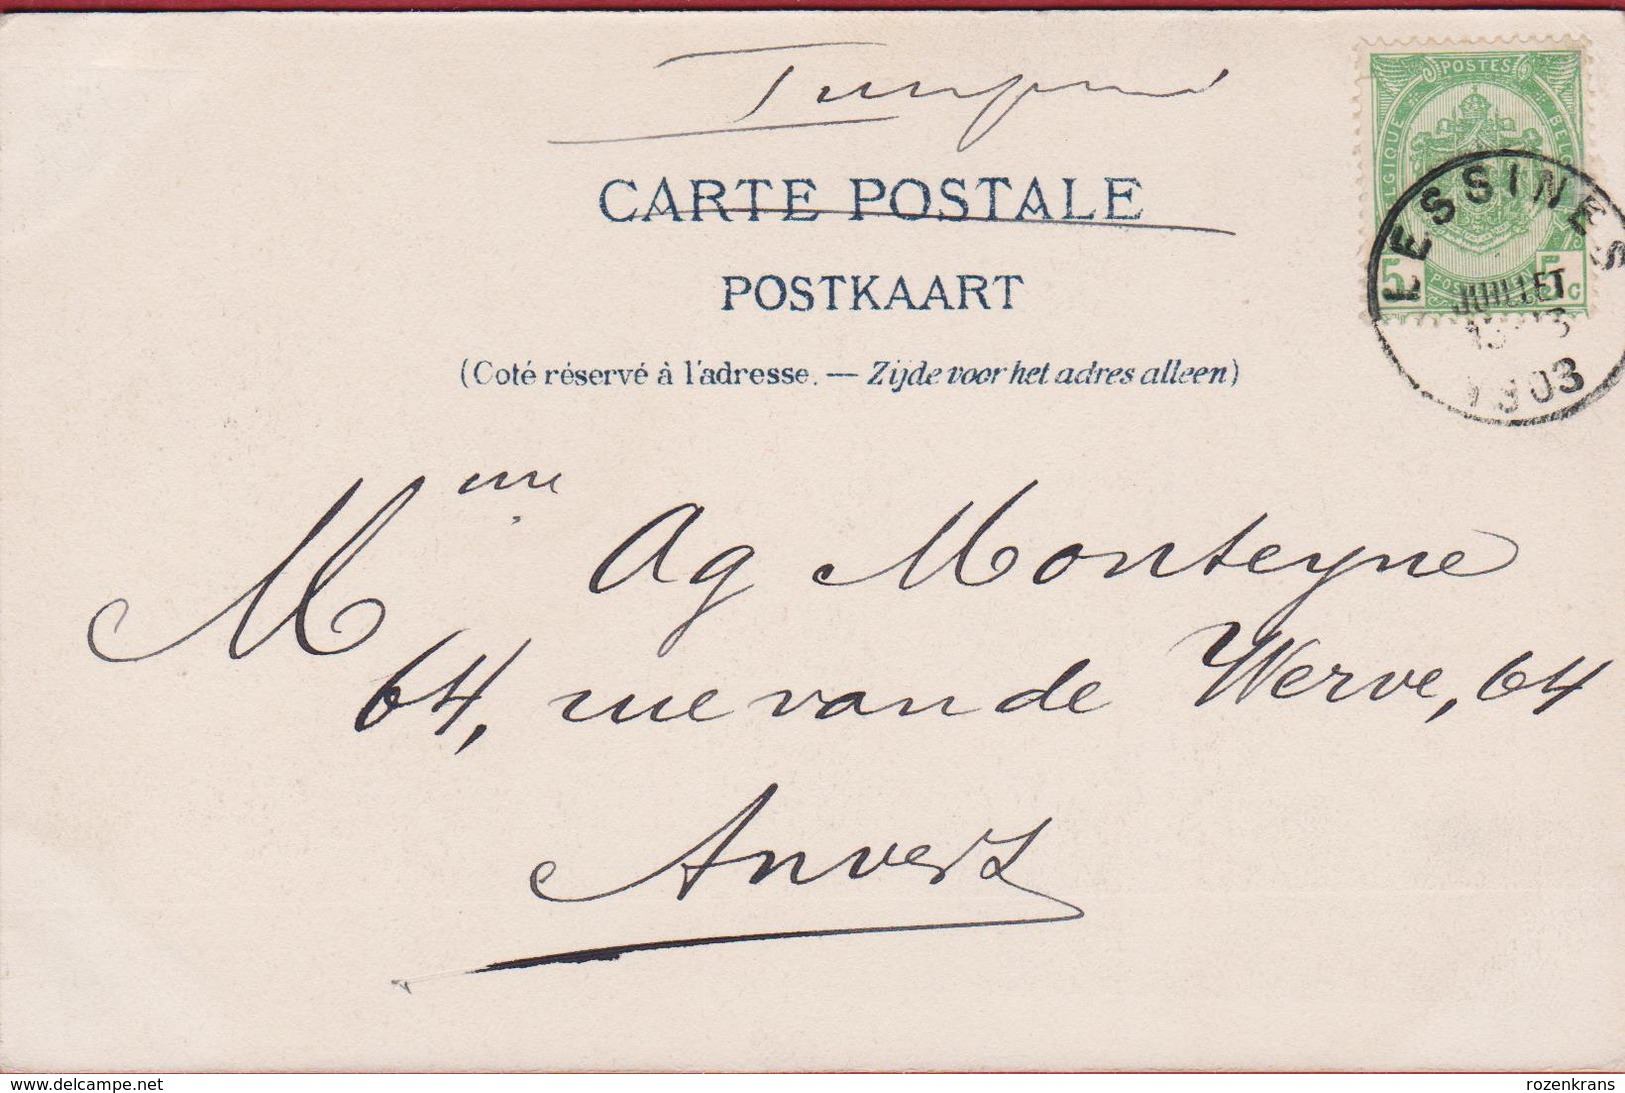 Imprimé
CARTE POSTALE
POSTKAART
(Coté réservé à l'adresse. — Zijde voor het adres alleen)
POSTES
BELGIQUE BELG
5 POSTERIJEN 5 c
LESSINES
JUILLET
13
1903
Mme Ag Monteyne
64, rue van de Werve, 64
Anvers
www.delcampe.net
rozenkrans